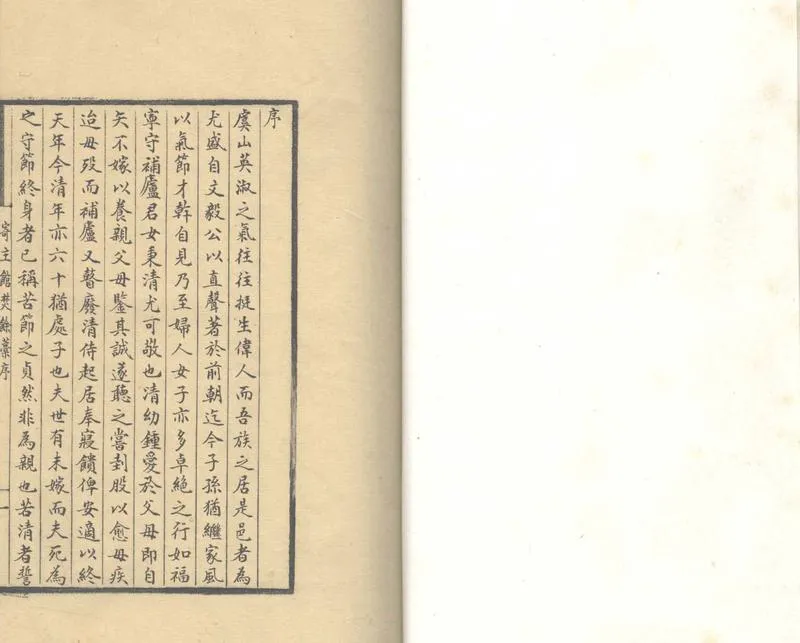 序
虞山英淑之氣往往挺生偉人而吾族之居是邑者為
尤盛自文毅公以直聲著於前朝迄今子孫猶繼家風
以氣節才幹自見乃至婦人女子亦多卓絶之行如福
寧守補廬君女秉清尤可敬也清幼鍾愛於父母即自
矢不嫁以養親父母鑒其誠遂聽之嘗刲股以愈母疾
迨母歿而補廬又瞽廢清侍起居奉寢饋俾安適以終
天年今清年亦六十猶處子也夫世有未嫁而夫死為
之守節終身者已稱苦節之貞然非為親也若清者誓
寄主館焚餘藁序
一